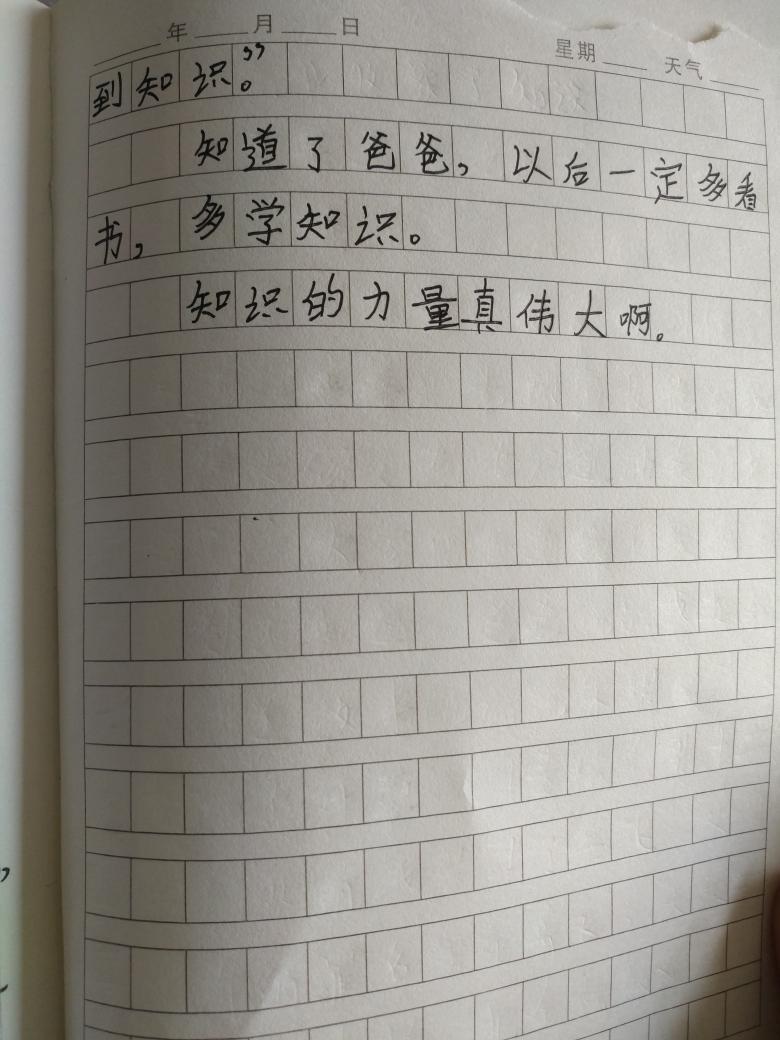 年 月 日 星期 天气
到知识。”
知道了爸爸，以后一定多看
书，多学知识。
知识的力量真伟大啊。